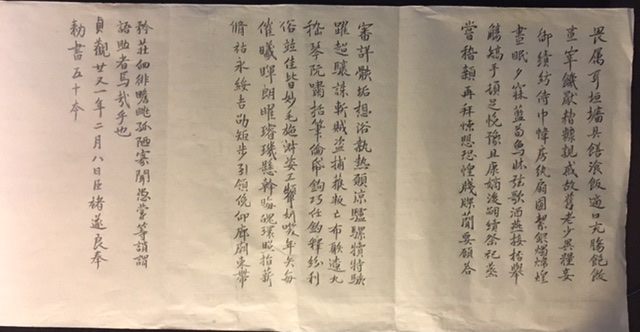 畏屬耳垣墻具饍湌飯適口充膓飽飫
烹宰飢厭糟糠親戚故舊老少異糧妾
御績紡侍巾帷房紈扇圓絜銀燭煒煌
晝眠夕寐藍笋象牀弦歌酒讌接杯舉
觴矯手頓足悅豫且康嫡後嗣續祭祀蒸
嘗稽顙再拜悚懼恐惶牋牒簡要顧答
審詳骸垢想浴執熱願涼驢騾犢特駭
躍超驤誅斬賊盜捕獲叛亡布射遼丸
嵇琴阮嘯恬筆倫紙鈞巧任釣釋紛利
俗並佳皆妙毛施淑姿工顰妍咲年矢每
催曦暉朗曜璿璣懸斡晦魄環照指薪
脩祜永綏吉劭矩步引領俯仰廊廟束帶
矜莊徊徘瞻眺孤陋寡聞愚蒙等誚謂
語助者焉哉乎也
貞觀廿又一年二月八日臣褚遂良奉
勅書五十本